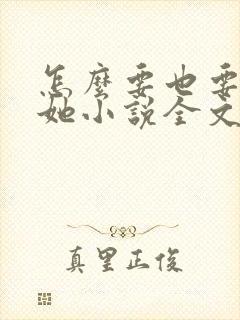 怎麼要也要
她小說全文
真里正俊